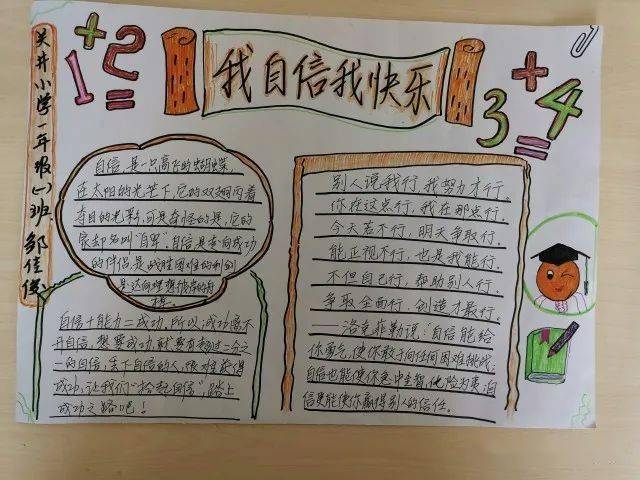 我自信我快乐
1+2=
3+4=
关井小学一年级(一)班 邹佳俊
自信,是一只高飞的蝴蝶,
在太阳的光芒下,它的双翅闪着
夺目的光彩,可是奇怪的是,它的
家却名叫"自卑"自信是走向成功
的伴侣是战胜困难的利剑
是达向理想彼岸的舟
自信+能力=成功,所以,成功离不
开自信,想要成功,就要有
一的自信,丢下自信的人,很难获得
成功,让我们"拾起自信",踏上
成功之路吧!
别人说我行,我努力才行。
你在这点行,我在那点行。
今天若不行,明天争取行。
能正视不行,也是我能行。
不但自己行,帮助别人行。
争取全面行,创造才最行。
——洛克菲勒说:"自信能给
你勇气,使你敢于向任何困难挑战;
自信也能使你急中生智,化险为夷;自
信更能使你赢得别人的信任。